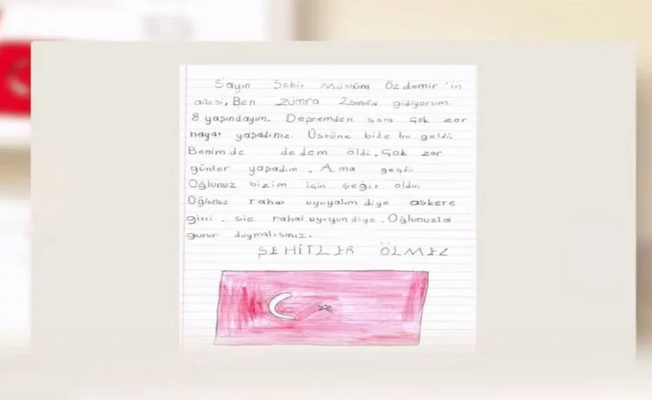 Sayın Şehit Müslüm Özdemir'in
ailesi, Ben zümra 2.sınıfa gidiyorum
8 yaşındayım. Depremden sora çok zor
hayat yaşadınız. Üstüne bide bu geldi.
Benimde dedem öldi. Çok zor
günler yaşadım. Ama geçdi
Oğlunuz bizim için şeğit oldu.
Oğlunuz rahat uyuyalım diye askere
gitti. siz rahat uyuyun diye. Oğlunuzla
gurur duymalısınız.
ŞEHİTLER ÖLMEZ